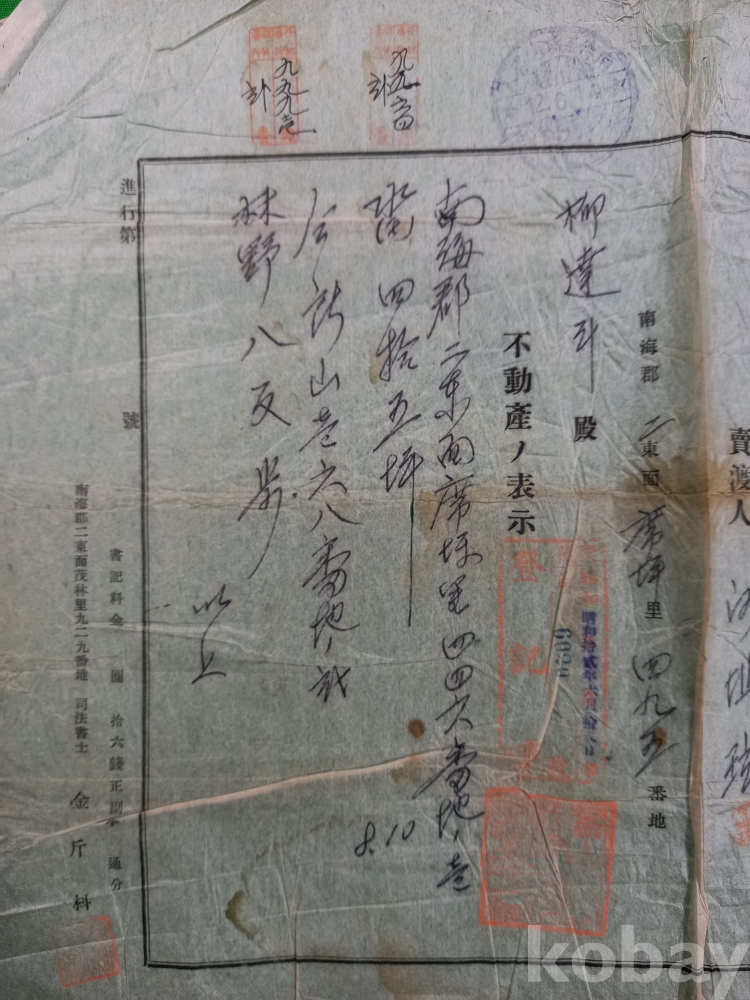 賣渡人
南海郡二東面席坪里四九五番地
柳達斗殿
不動產ノ表示
登記
昭和拾貳年六月拾八日
6039
南海郡二東面席坪里四四六番地ノ壱
畓四拾五坪
仝所山壱六八番地ノ貳
林野八反歩
以上
8.10
12.6
九九六四
九九九壱
進行第 號
書記料金 圓 拾六錢正副本 通分
南海郡二東面茂林里九二九番地 司法書士 金斤科
kobay